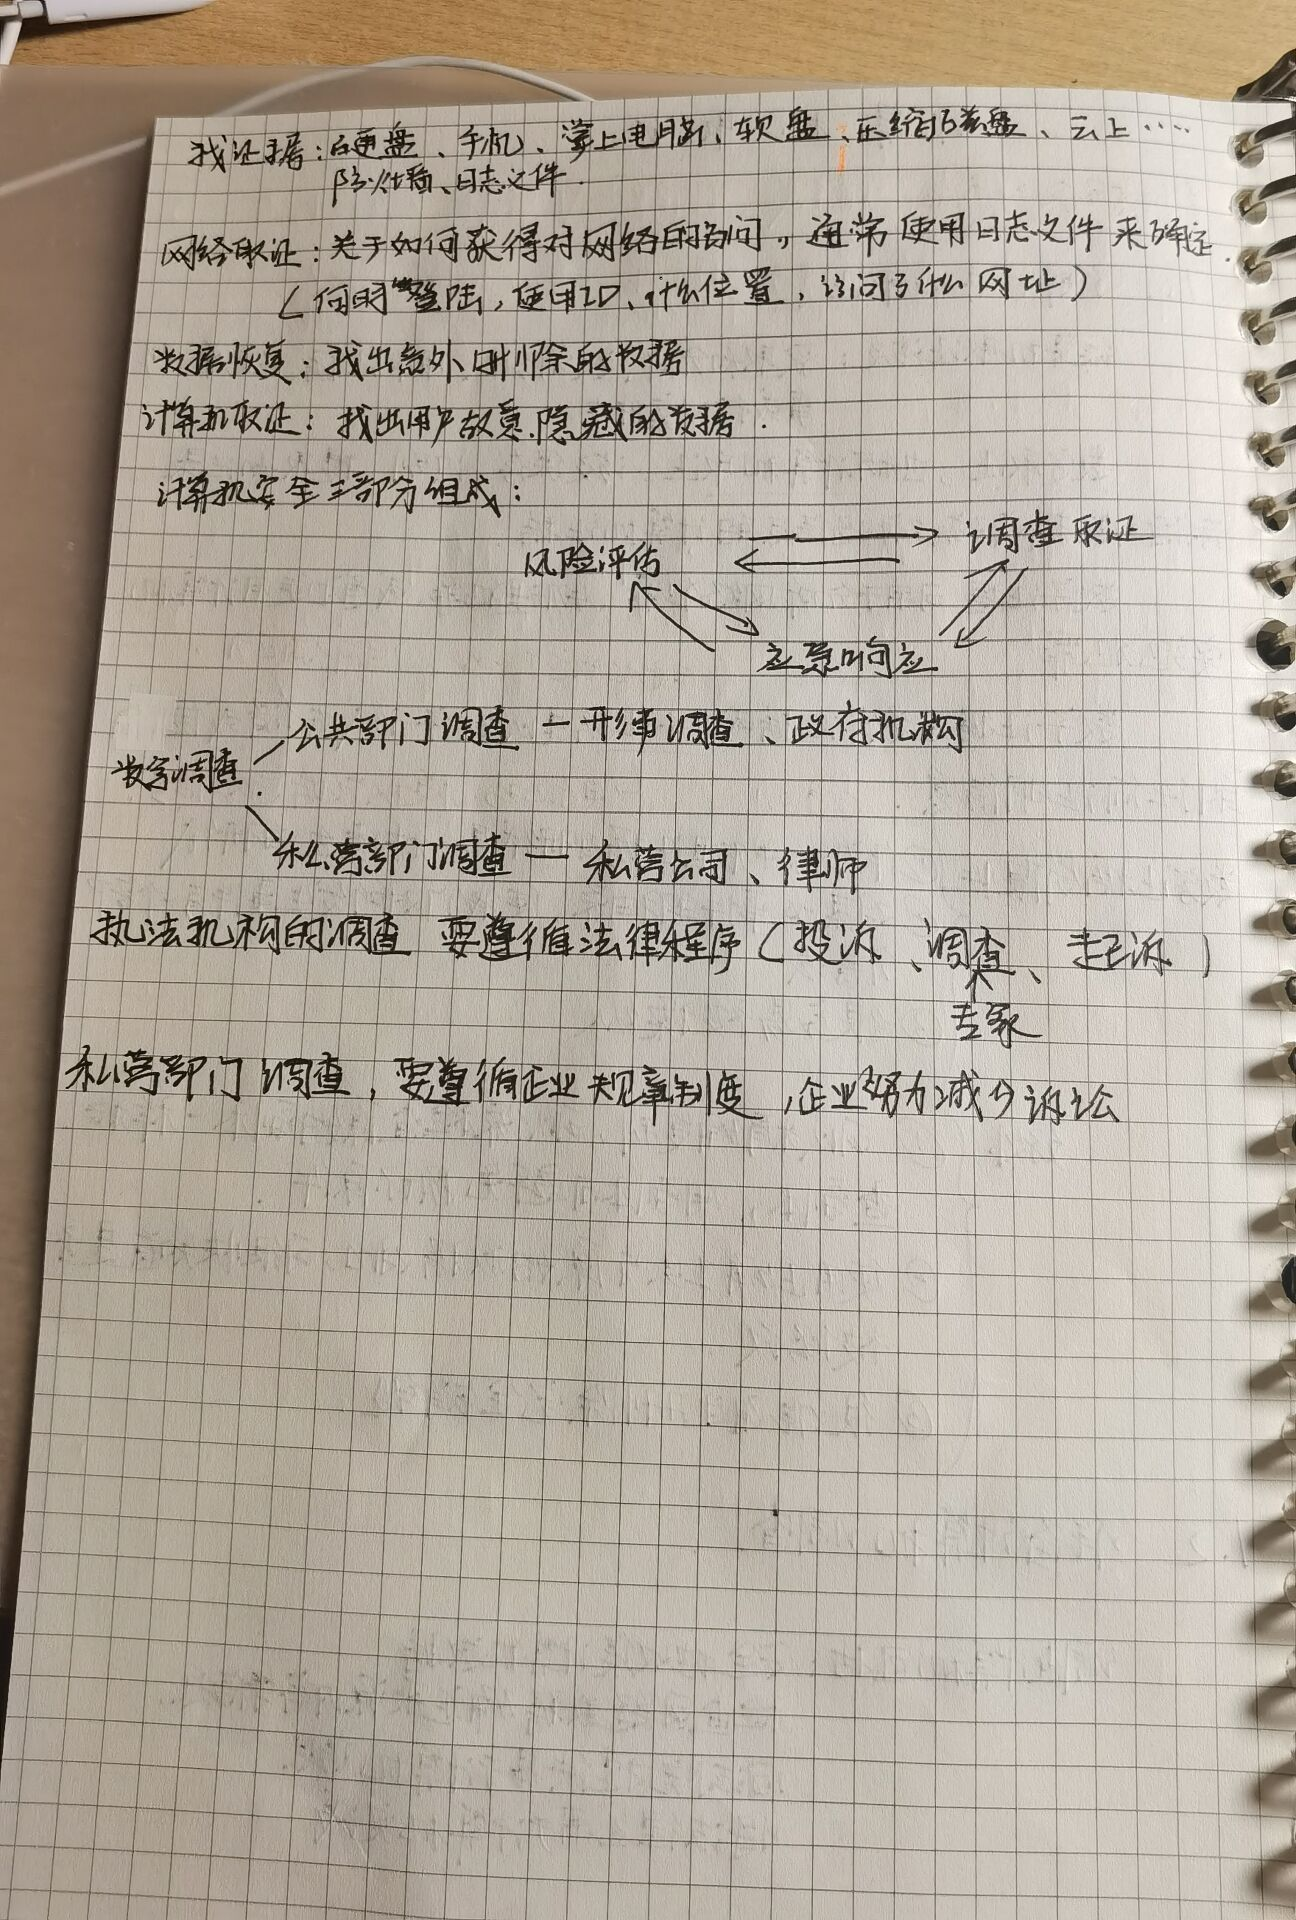 找证据：硬盘、手机、掌上电脑、软盘、压缩磁盘、云上……
防火墙、日志文件.
网络取证：关于如何获得对网络的访问，通常使用日志文件来确定.
(何时登陆，使用ID、什么位置，访问了什么网址)
数据恢复：找出意外删除的数据
计算机取证：找出用户故意隐藏的数据.
计算机安全三部分组成：
风险评估
调查取证
应急响应
公共部门调查 — 刑事调查、政府机构
数字调查
私营部门调查 — 私营公司、律师
执法机构的调查 要遵循法律程序(投诉、调查、起诉)
专家
私营部门调查，要遵循企业规章制度，企业努力减少诉讼